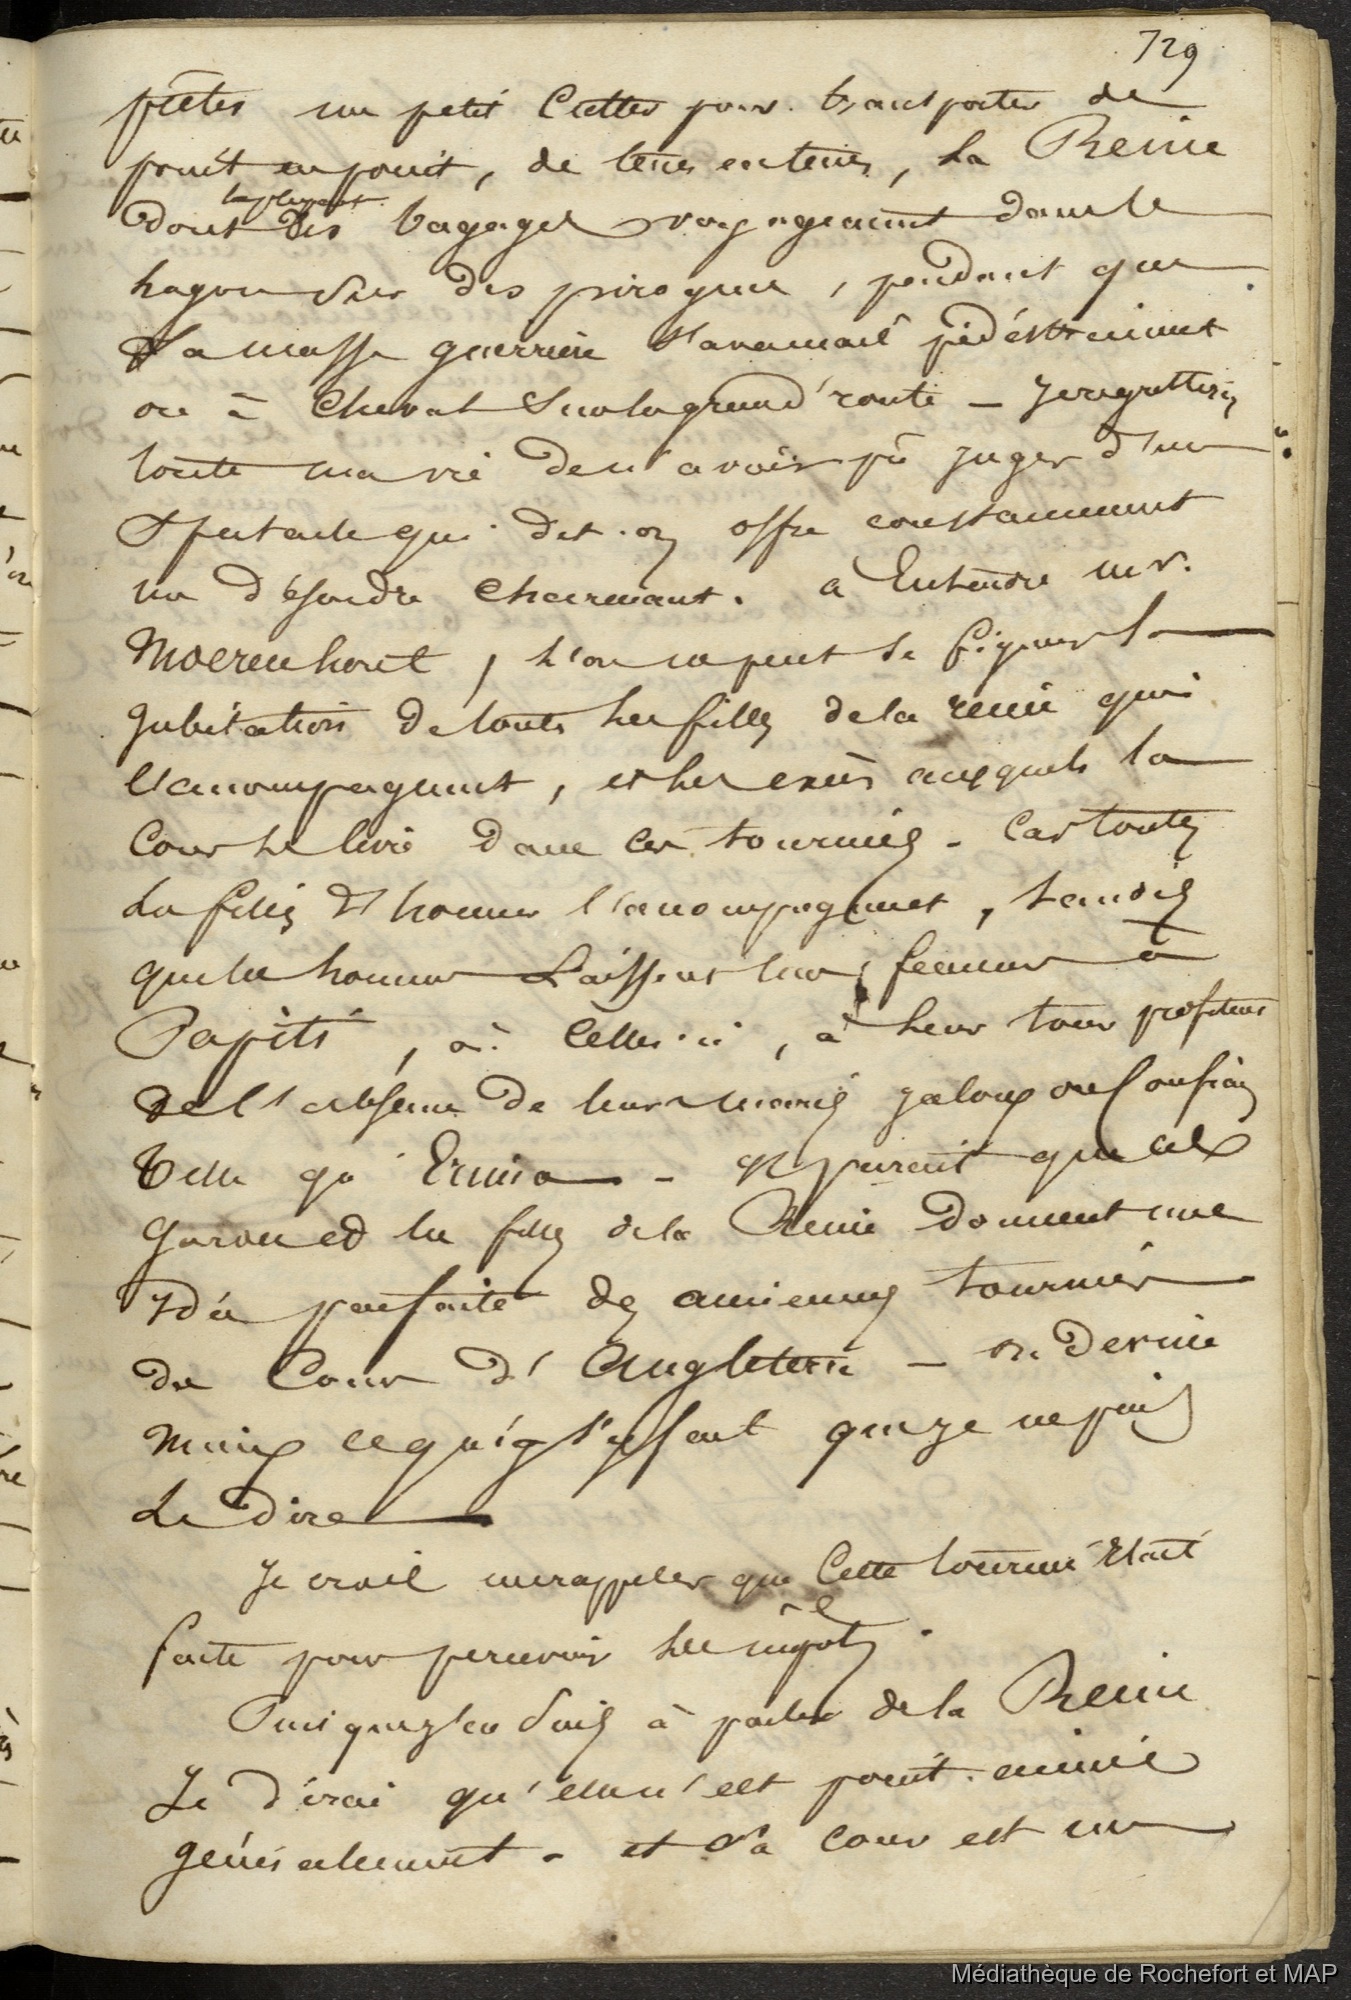 729
prêter un petit Cutter pour transporter de
point en point, de terres en terres, la Reine
dont les bagages voyageaient dans le
lagon sur des pirogues, pendant que
la masse guerrière s'avancait pédéstrement
ou à cheval sur la grand'route — Je regretterai
toute ma vie de n'avoir pû juger d'un
Spectacle qui dit-on offre constamment
un désordre charmant. a Entendre mr.
Moerenhout, l'on ne peut se figurer la
jubilation de toutes les filles de la reine qui
l'accompagnent, et les excès auxquels la
Cour se livre dans ces tournées - Car toutes
les filles d'honneur l'accompagnent, tandis
que les hommes laissent leurs femmes à
Papiti, où celles-ci, à leur tour profitent
de l'absence de leurs maris jaloux ou confiants
Telle qu'
garces et les filles de la Reine donnent une
idée parfaite des anciennes tournées
de Cour d'Angleterre — on devine
mieux ce qu'il s'y fait que je ne puis
le dire —
Je crois me rappeler que Cette tournée Etait
faite pour percevoir les impôts.
Puisque j'en suis à parler de la Reine
Je dirai qu'elle n'est point aimée
généralement. et sa cour est un
Médiathèque de Rochefort et MAP